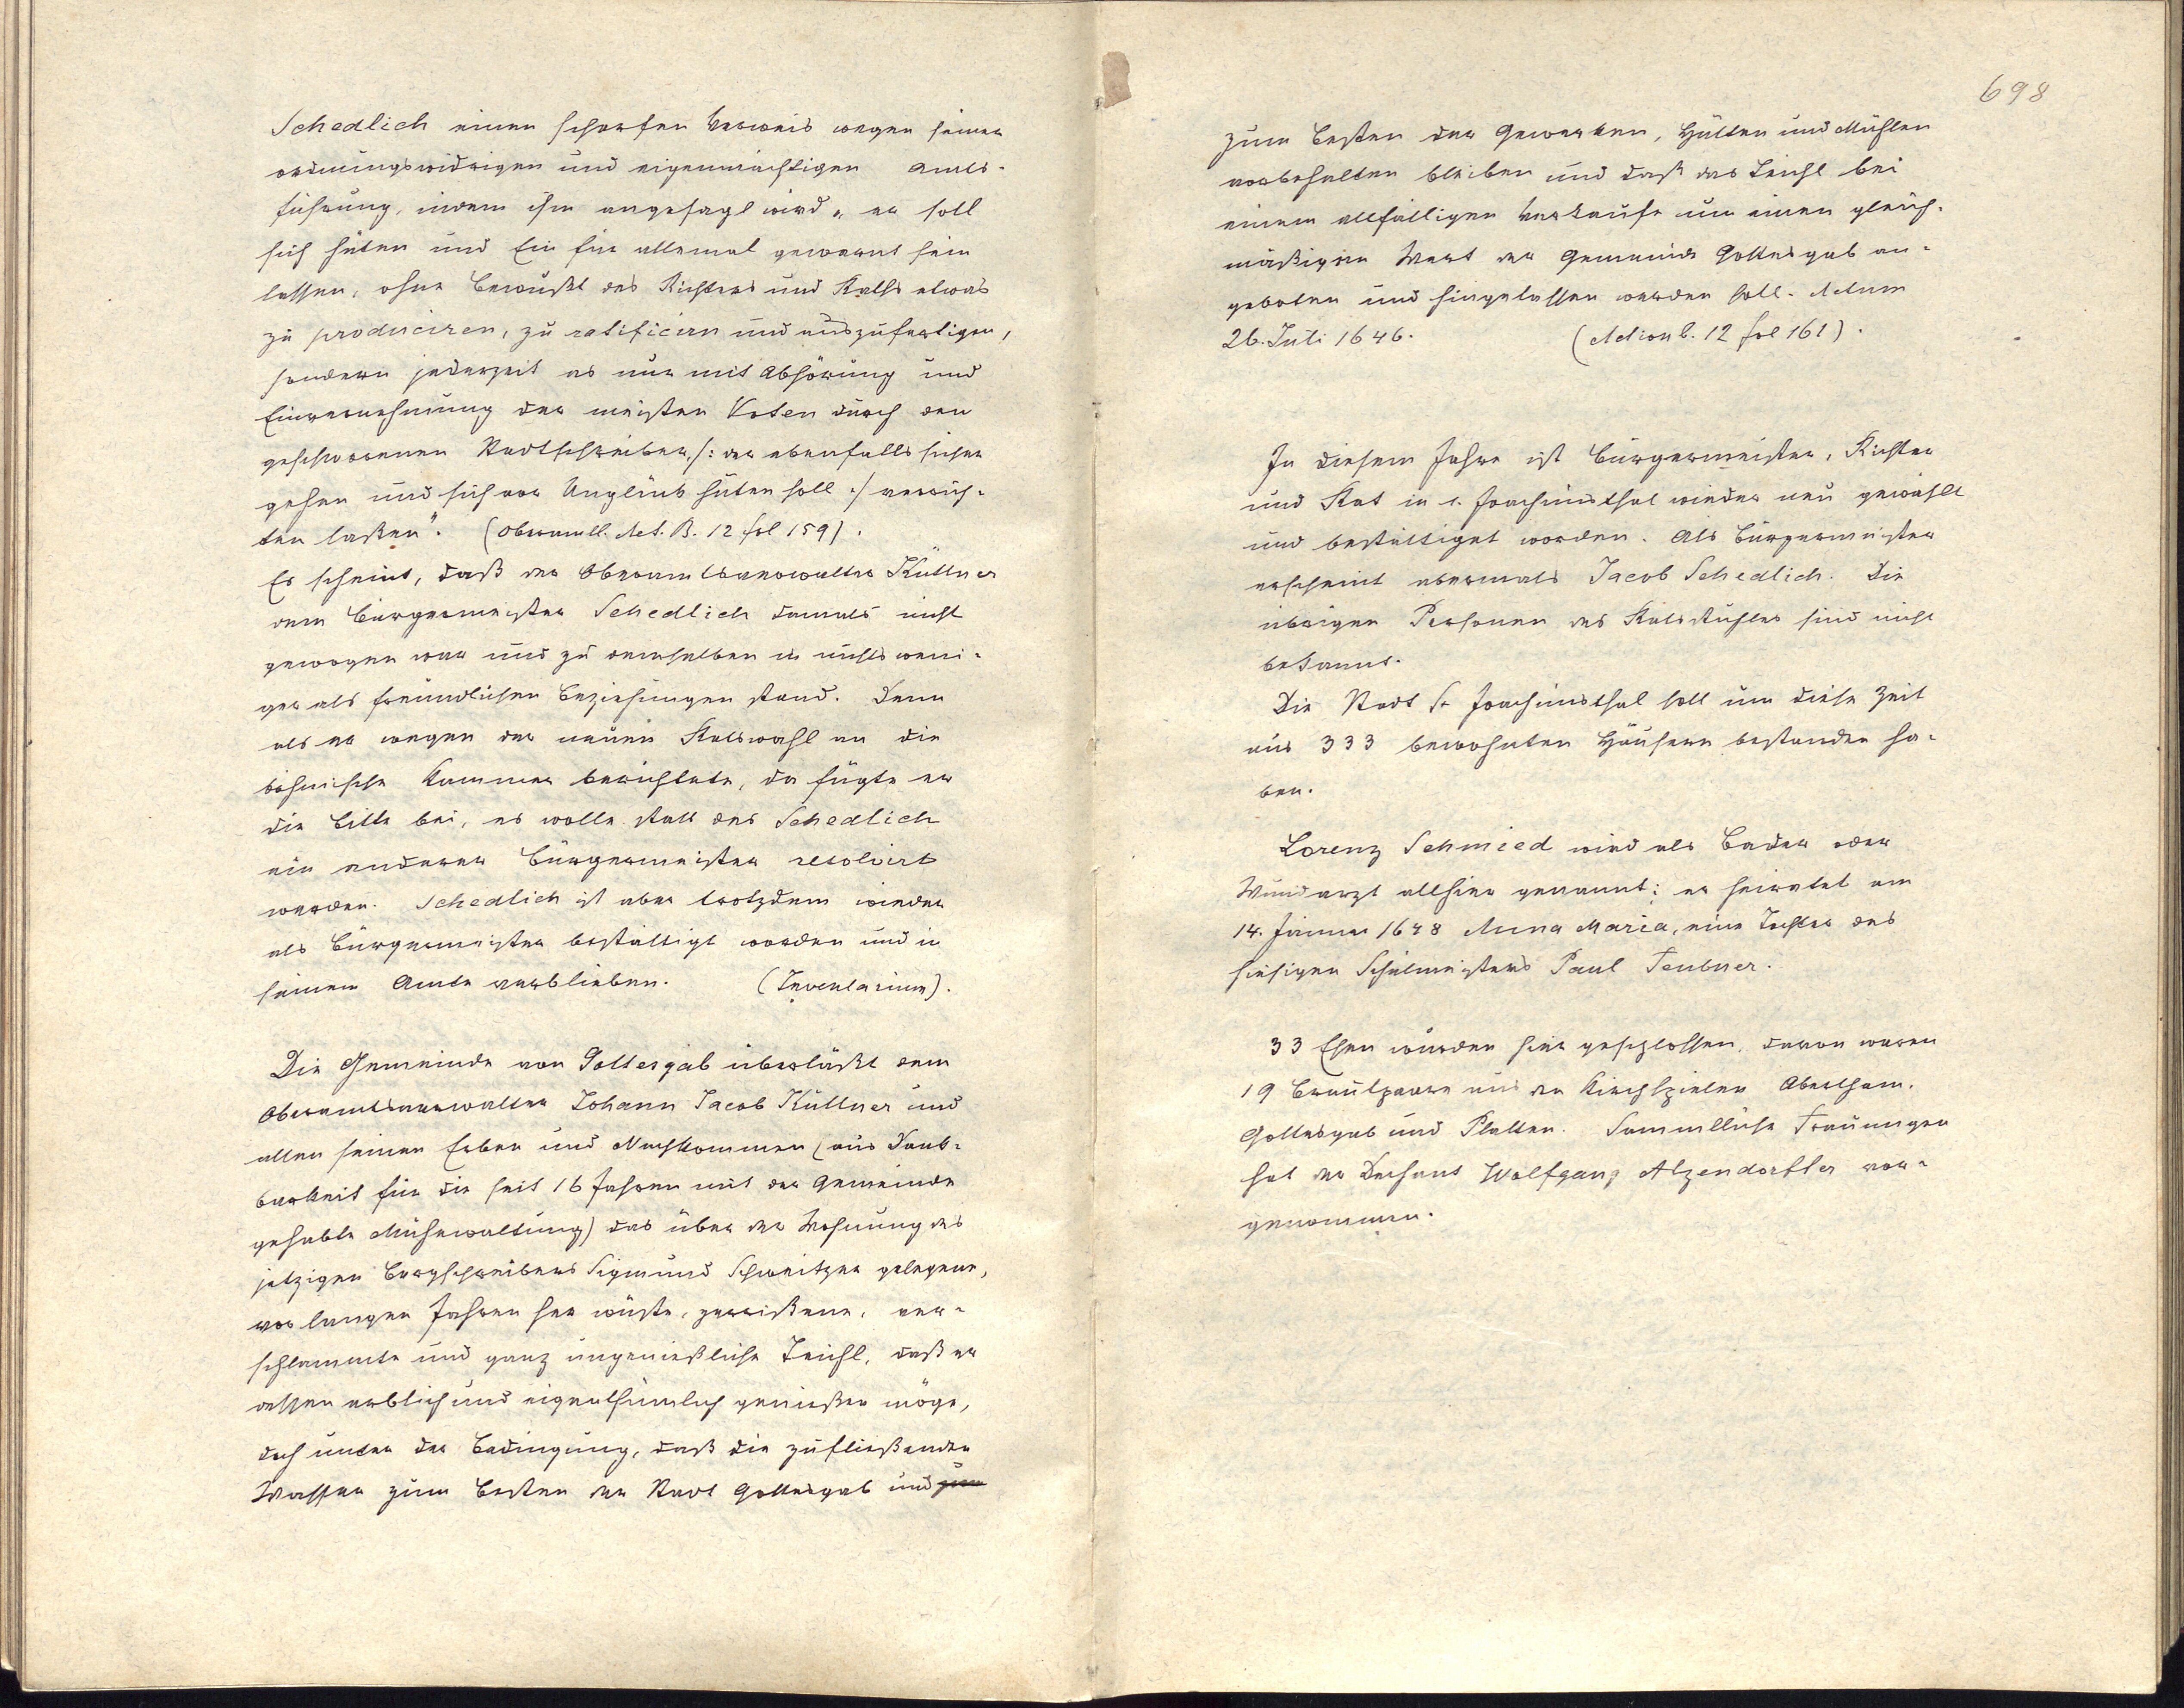 Schedlich einen scharfen Verweis wegen seiner
ordnungswidrigen und eigenmächtigen Amts-
führung, indem ihm angesagt wird „er soll
sich hüten und Ein für allemal gewarnt sein
lassen, ohne Bewußt des Richters und Raths etwas
zu produciren, zu ratificirn und auszufertigen,
sondern jederzeit es nur mit Abhörung und
Einvernehmung der meisten Voten durch den
geschworenen Stadtschreiber, /: der ebenfalls sicher
gehen und sich vor Unglück hüten soll :/ verrich-
ten laßen". (Oberamtl. Act. B. 12 fol 159).
Es scheint, daß der Oberamtsverwalter Küttner
dem Bürgermeister Schedlich damals nicht
gewogen war und zu demselben in nichts weni-
ger als freundlichen Beziehungen stand. Denn
als er wegen der neuen Ratswahl an die
böhmische Kammer berichtete, da fügte er
die Bitte bei, es wolle statt des Schedlich
ein anderer Bürgermeister resolvirt
werden. Schedlich ist aber trotzdem wieder
als Bürgermeister bestättigt worden und in
seinem Amte verblieben. (Inventarium).
Die Gemeinde von Gottesgab überläßt dem
Oberamtsverwalter Johann Jacob Küttner und
allen seinen Erben und Nachkommen (aus Dank-
barkeit für die seit 16 Jahren mit der Gemeinde
gehabte Mühewaltung) das über der Wohnung des
jetzigen Bergschreibers Sigmund Schweitzer gelegene,
vor langen Jahren her wüste, zerrißene, ver-
schlammte und ganz ungenießliche Teichl, daß er
dessen erblich und eigenthümlich genießen möge,
doch unter der Bedingung, daß die zufließenden
Wasser zum Besten der Stadt Gottesgab und zum
698
zum Besten der Gewerken, Hütten und Mühlen
vorbehalten bleiben und daß das Teichl bei
einem allfälligen Verkaufe um einen gleich-
mäßigen Wert der Gemeinde Gottesgab an-
geboten und hingelassen werden soll. Actum
26. Juli 1646. (Action b. 12 fol 161).
In diesem Jahre ist Bürgermeister, Richter
und Rat in s. Joachimsthal wieder neu gewählt
und bestättiget worden. Als Bürgermeister
erscheint abermals Jacob Schedlich. Die
übrigen Personen des Ratsstuhles sind nicht
bekannt.
Die Stadt St Joachimsthal soll um diese Zeit
aus 333 bewohnten Häusern bestanden ha-
ben.
Lorenz Schmied wird als Bader oder
Wundarzt allhier genannt; er heiratet am
14. Jänner 1648 Anna Maria, eine Tochter des
hiesigen Schulmeisters Paul Teubner.
33 Ehen wurden hier geschlossen, davon waren
19 Brautpaare aus den Kirchspielen Abertham,
Gottesgab und Platten. Sämmtliche Trauungen
hat der Dechant Wolfgang Alzendorffer vor-
genommen.